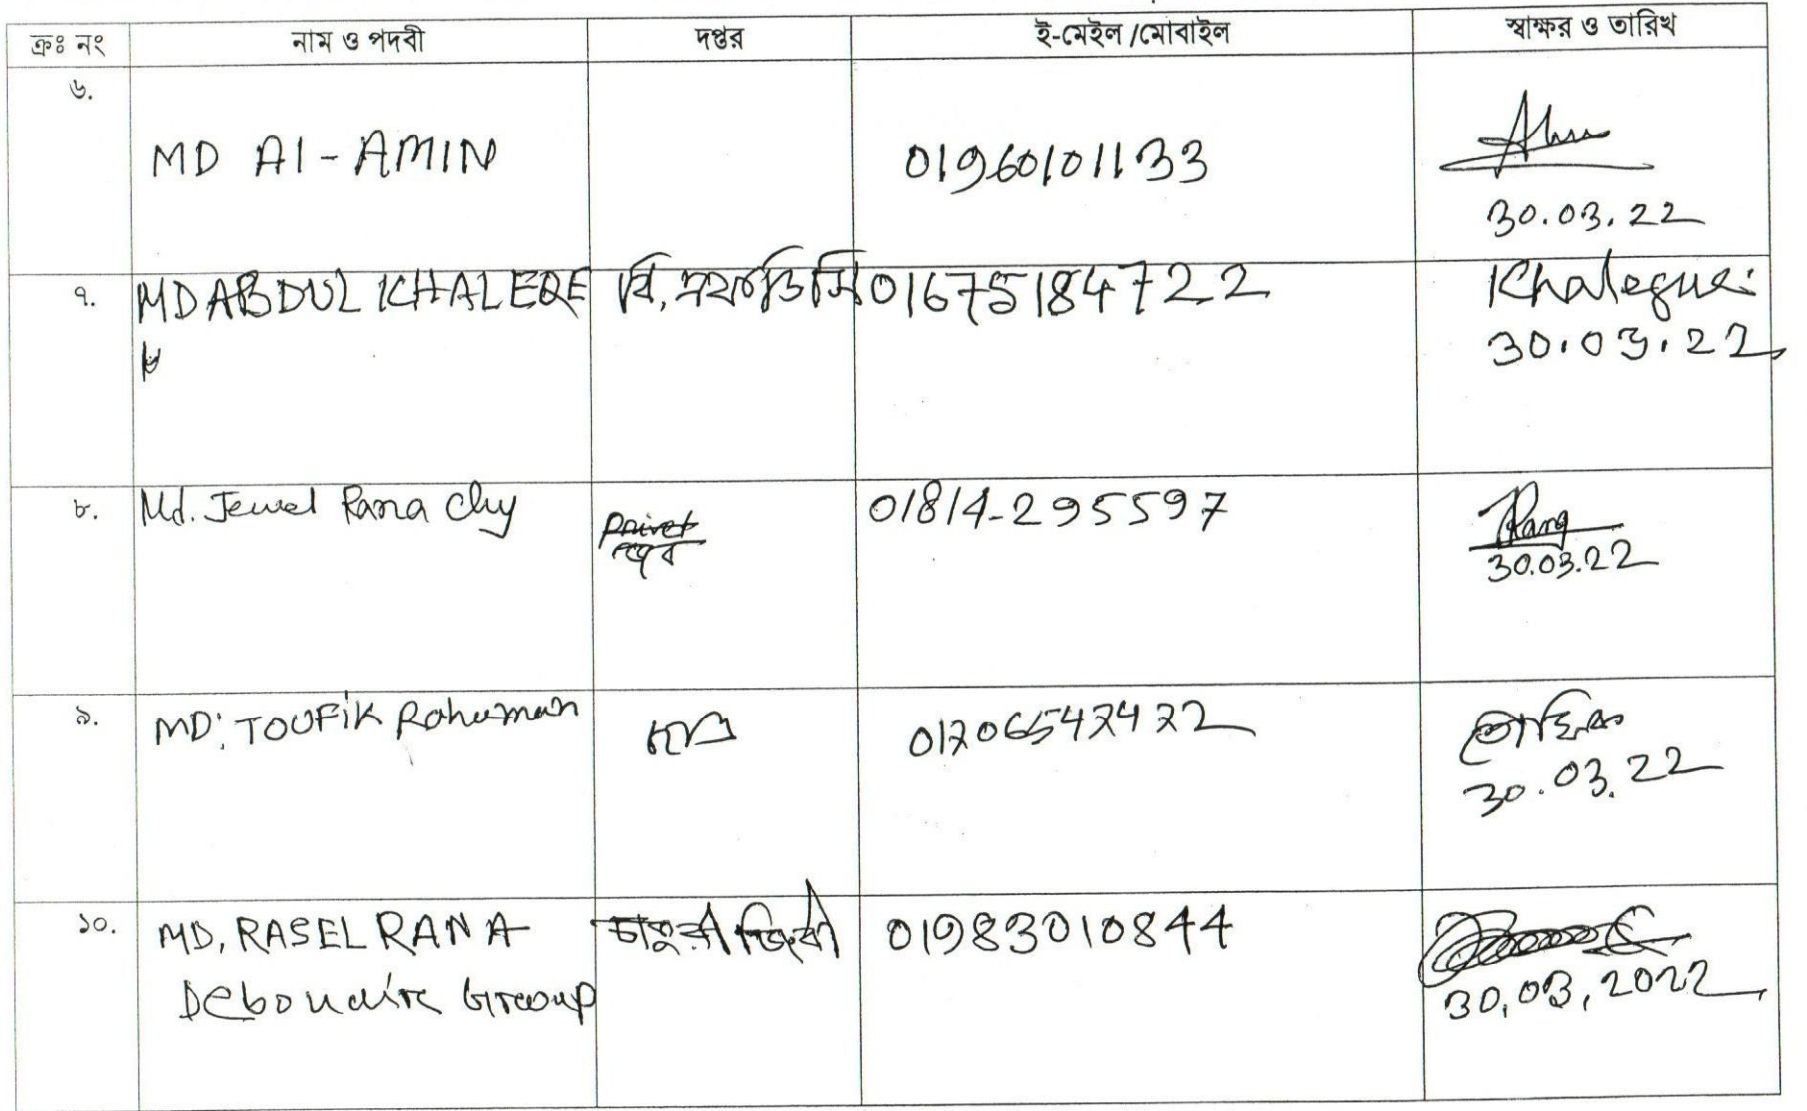 ক্রঃ নং নাম ও পদবী দপ্তর ই-মেইল /মোবাইল স্বাক্ষর ও তারিখ
৬.
MD Al-AMIN 01960101133
30.03.22
৭. MD ABDUL KHALEQE বি, এফডিসি 01675184722 Khaleque
30.03.22
৮. Md. Jewel Rana Chy 01814-295597 Rana
30.03.22
৯. MD: TOUFIK Rahuman তৌফিক
30.03.22
১০. MD, RASEL RANA 01983010844
Debonaire Group 30,03,2022